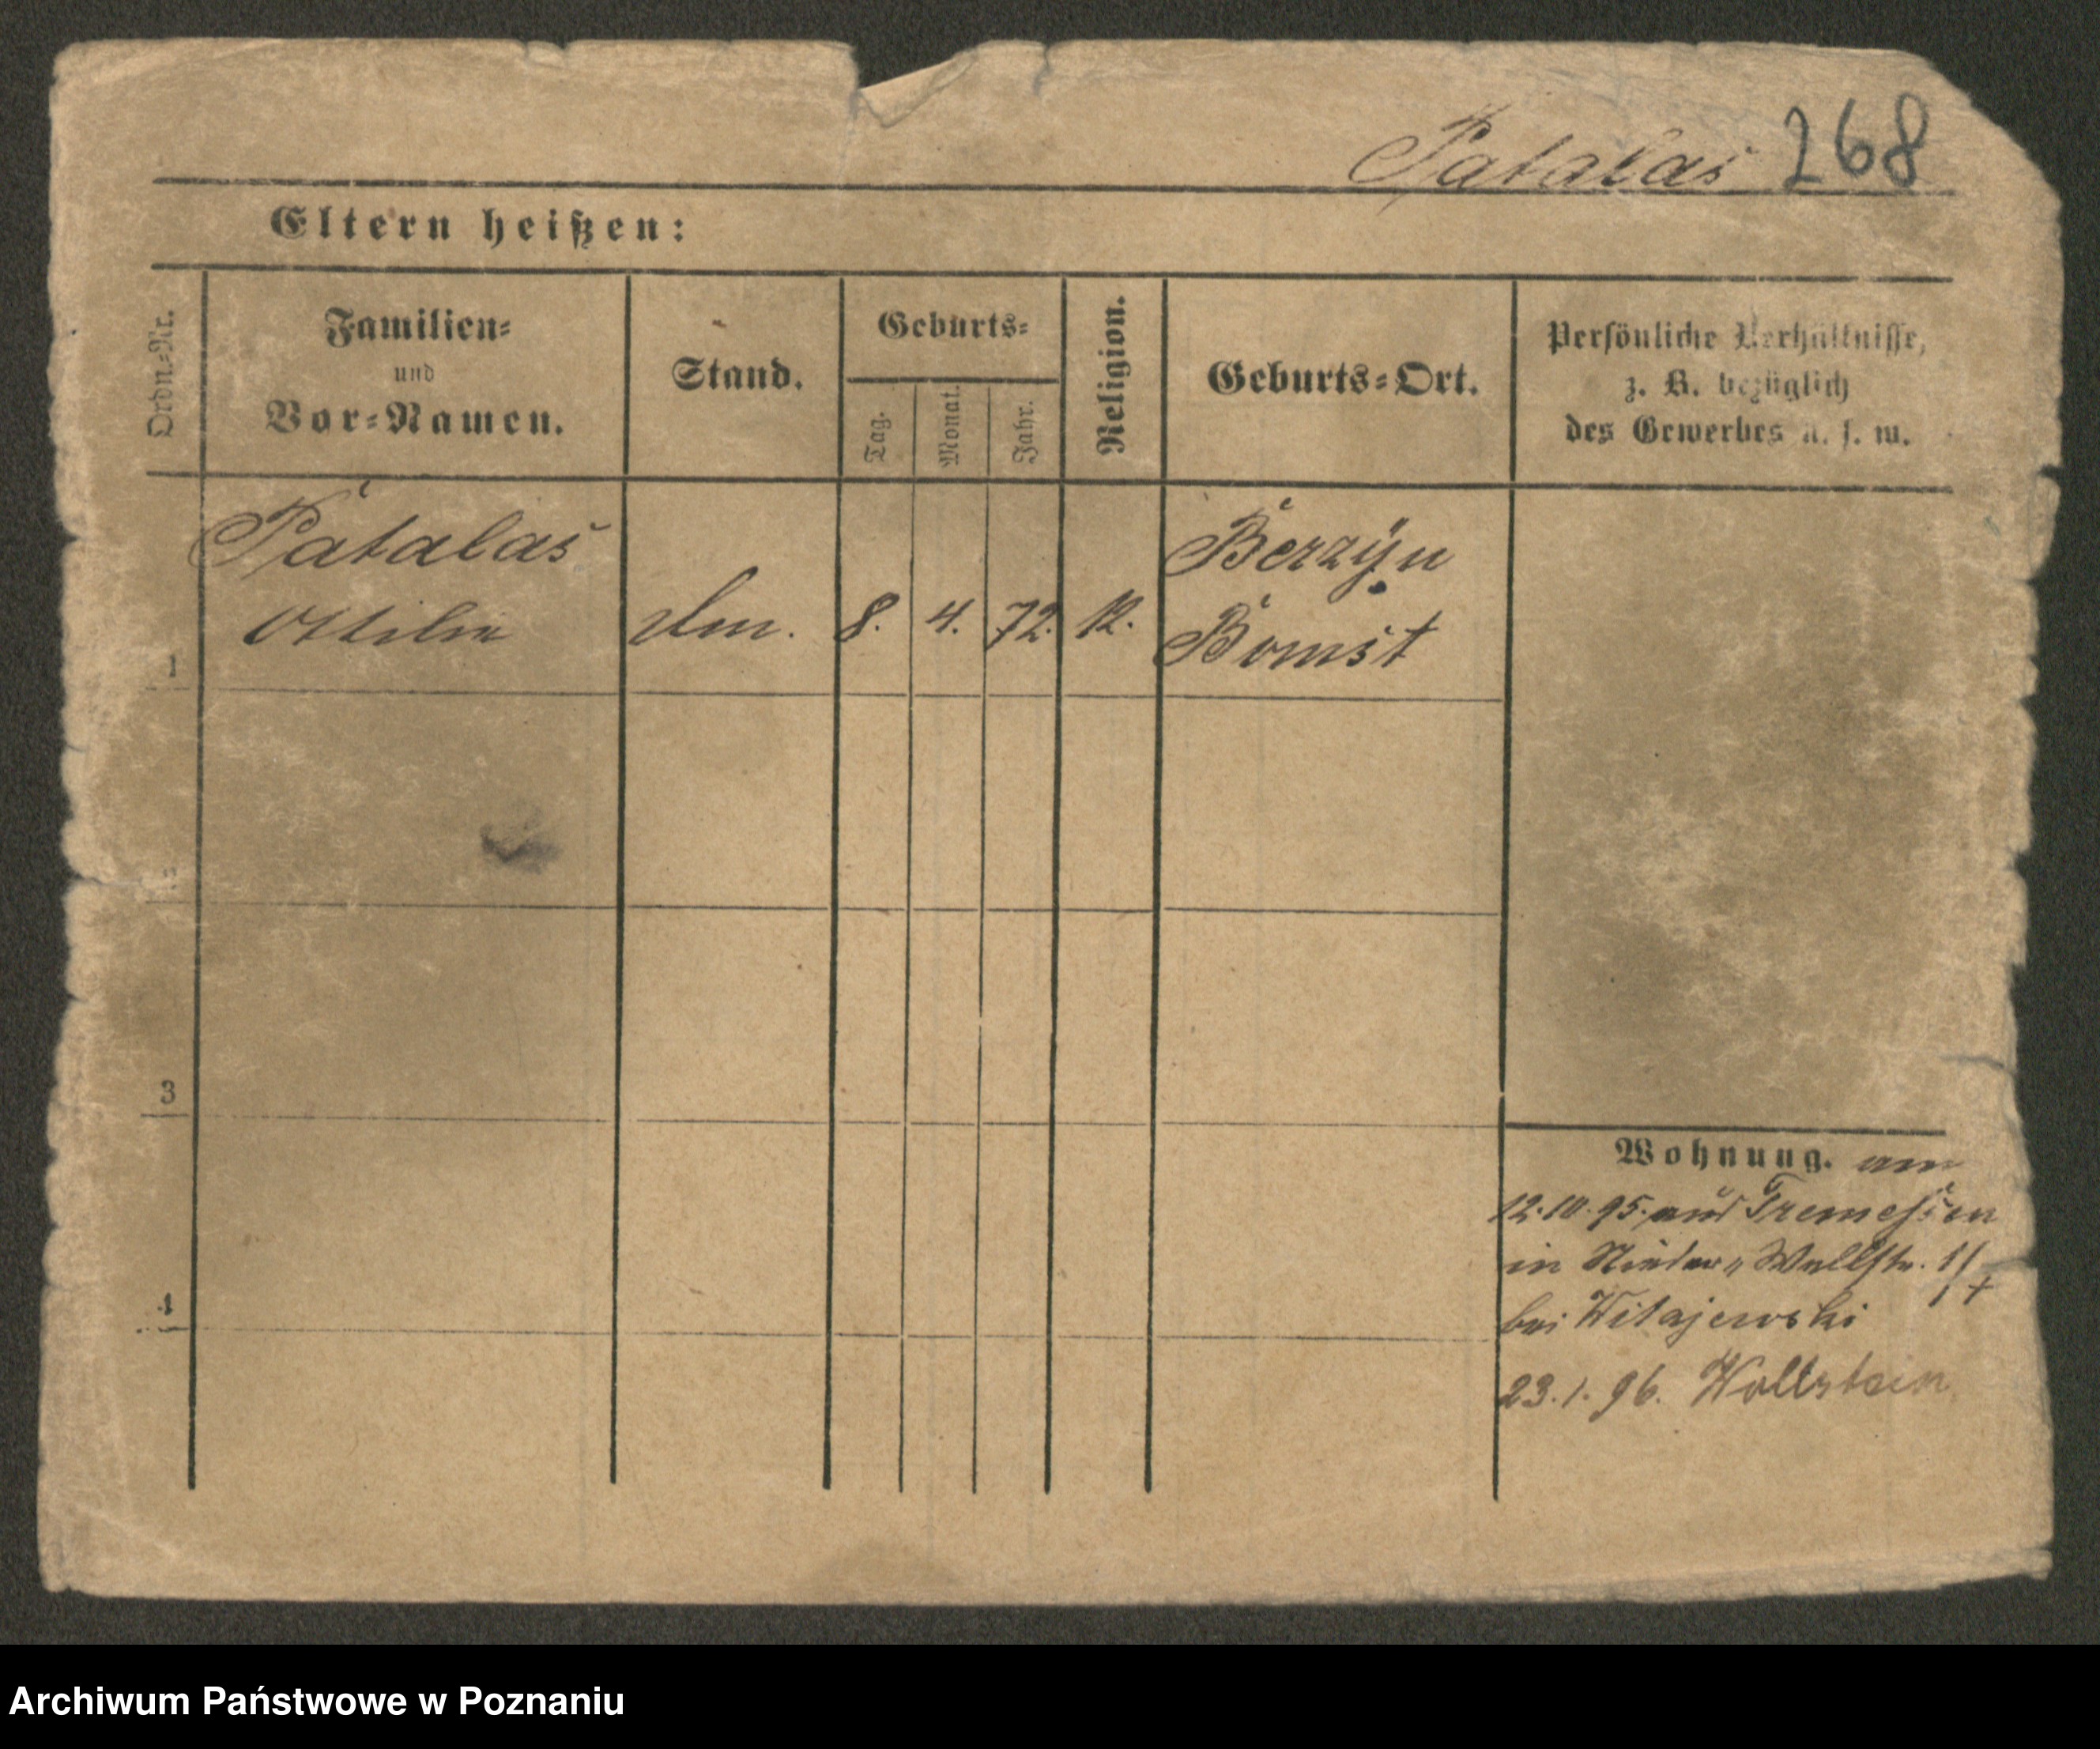 Patalas 268
Eltern heißen:
Ordn.-Nr.
Familien-
und
Vor-Namen.
Stand.
Geburts-
Tag.
Monat.
Jahr.
Religion.
Geburts-Ort.
Persönliche Verhältnisse,
z. B. bezüglich
des Gewerbes u. s. w.
Patalas
Ottilie
8. 4. 72.
Berzyn
Bomst
1
3
4
Wohnung. am
12.10.95. aus Tremessen
in Wallstr.
bei Witajewski
23.1.96. Wollstein
Archiwum Państwowe w Poznaniu